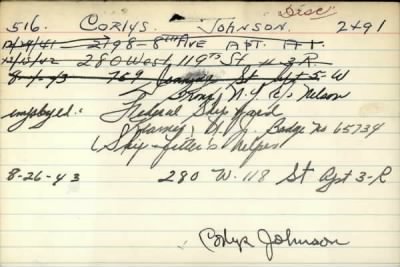 Disc
516. CORIYS. JOHNSON. 2491
12/29/41 2198-8th AVE APT. A1.
12/15/42 280 West, 119th St, # 3-R
8-1-43 769 St Apt 5-W
Bronx N.Y. c/o Nelson
employed: Federal Ship Yard
Kearney, N.J. Badge No 65734
(Ship-fitter's helper)
8-26-43 280 W. 118 St Apt 3-R
Johnson